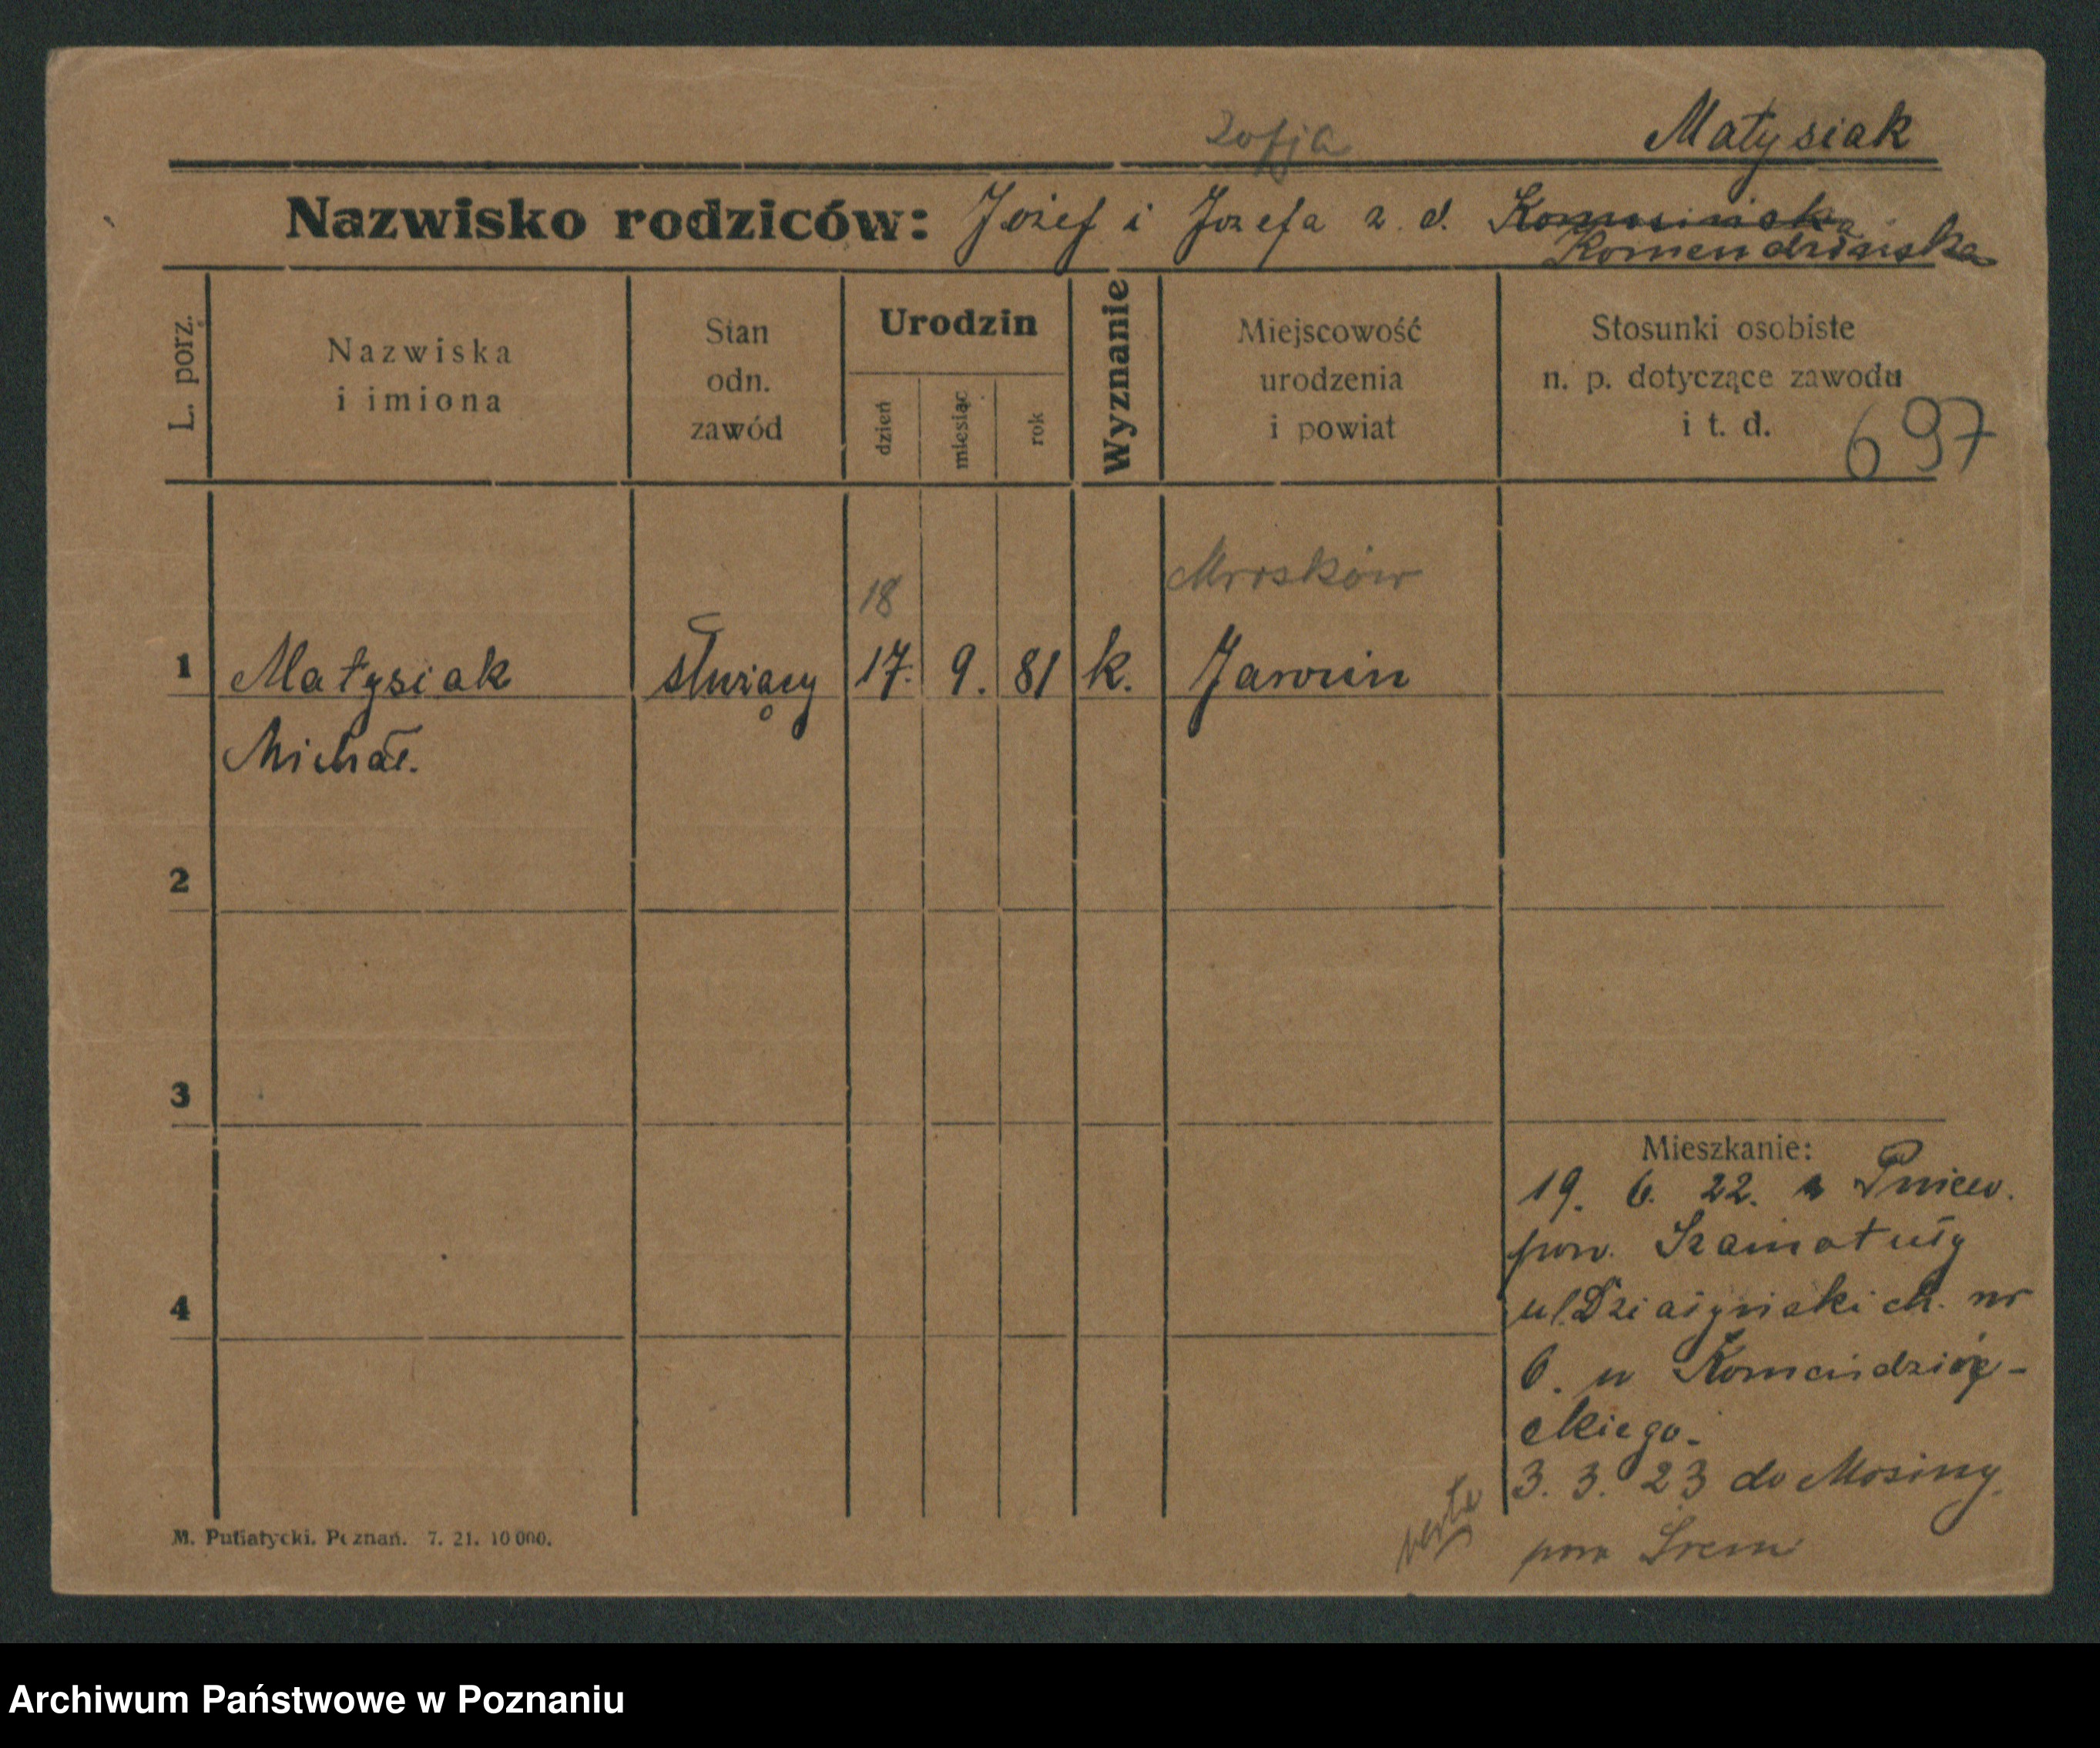 Zofja
Matysiak
Nazwisko rodziców: Józef i Józefa z d.
Komendzińska
L. porz.
Nazwiska
i imiona
Stan
odn.
zawód
Urodzin
dzień
miesiąc
rok
Wyznanie
Miejscowość
urodzenia
i powiat
Stosunki osobiste
n. p. dotyczące zawodu
i t. d.
697
18
1 Matysiak służący 17. 9. 81 k.
Michał.
2
3
4
Mieszkanie:
19. 6. 22. z Pniew.
pow. Szamotuły
ul. Działyńskich. nr
6. u
ckiego.
3. 3. 23 do Mosiny
pow Śrem
verte
M. Putiatycki. Poznań. 7. 21. 10 000.
Archiwum Państwowe w Poznaniu